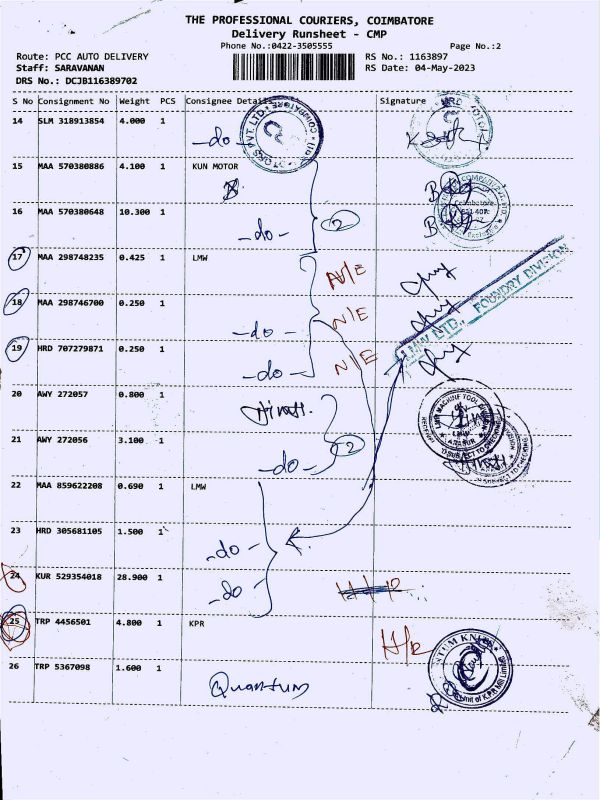 THE PROFESSIONAL COURIERS, COIMBATORE
Delivery Runsheet - CMP
Phone No.:0422-3505555 Page No.:2
Route: PCC AUTO DELIVERY RS No.: 1163897
Staff: SARAVANAN RS Date: 04-May-2023
DRS No.: DCJB116389702
S No Consignment No Weight PCS Consignee Details Signature
14 SLM 318913854 4.000 1
-do-
15 MAA 570380886 4.100 1 KUN MOTOR
16 MAA 570380648 10.300 1
-do- 2
17 MAA 298748235 0.425 1 LMW
N/E
18 MAA 298746700 0.250 1 N/E
-do-
19 HRD 707279871 0.250 1 N/E
-do-
LMW LTD., FOUNDRY DIVISION
20 AWY 272057 0.800 1
21 AWY 272056 3.100 1 2
-do-
22 MAA 859622208 0.690 1 LMW
23 HRD 305681105 1.500 1
-do-
24 KUR 529354018 28.900 1
-do-
25 TRP 4456501 4.800 1 KPR
26 TRP 5367098 1.600 1
Quantum